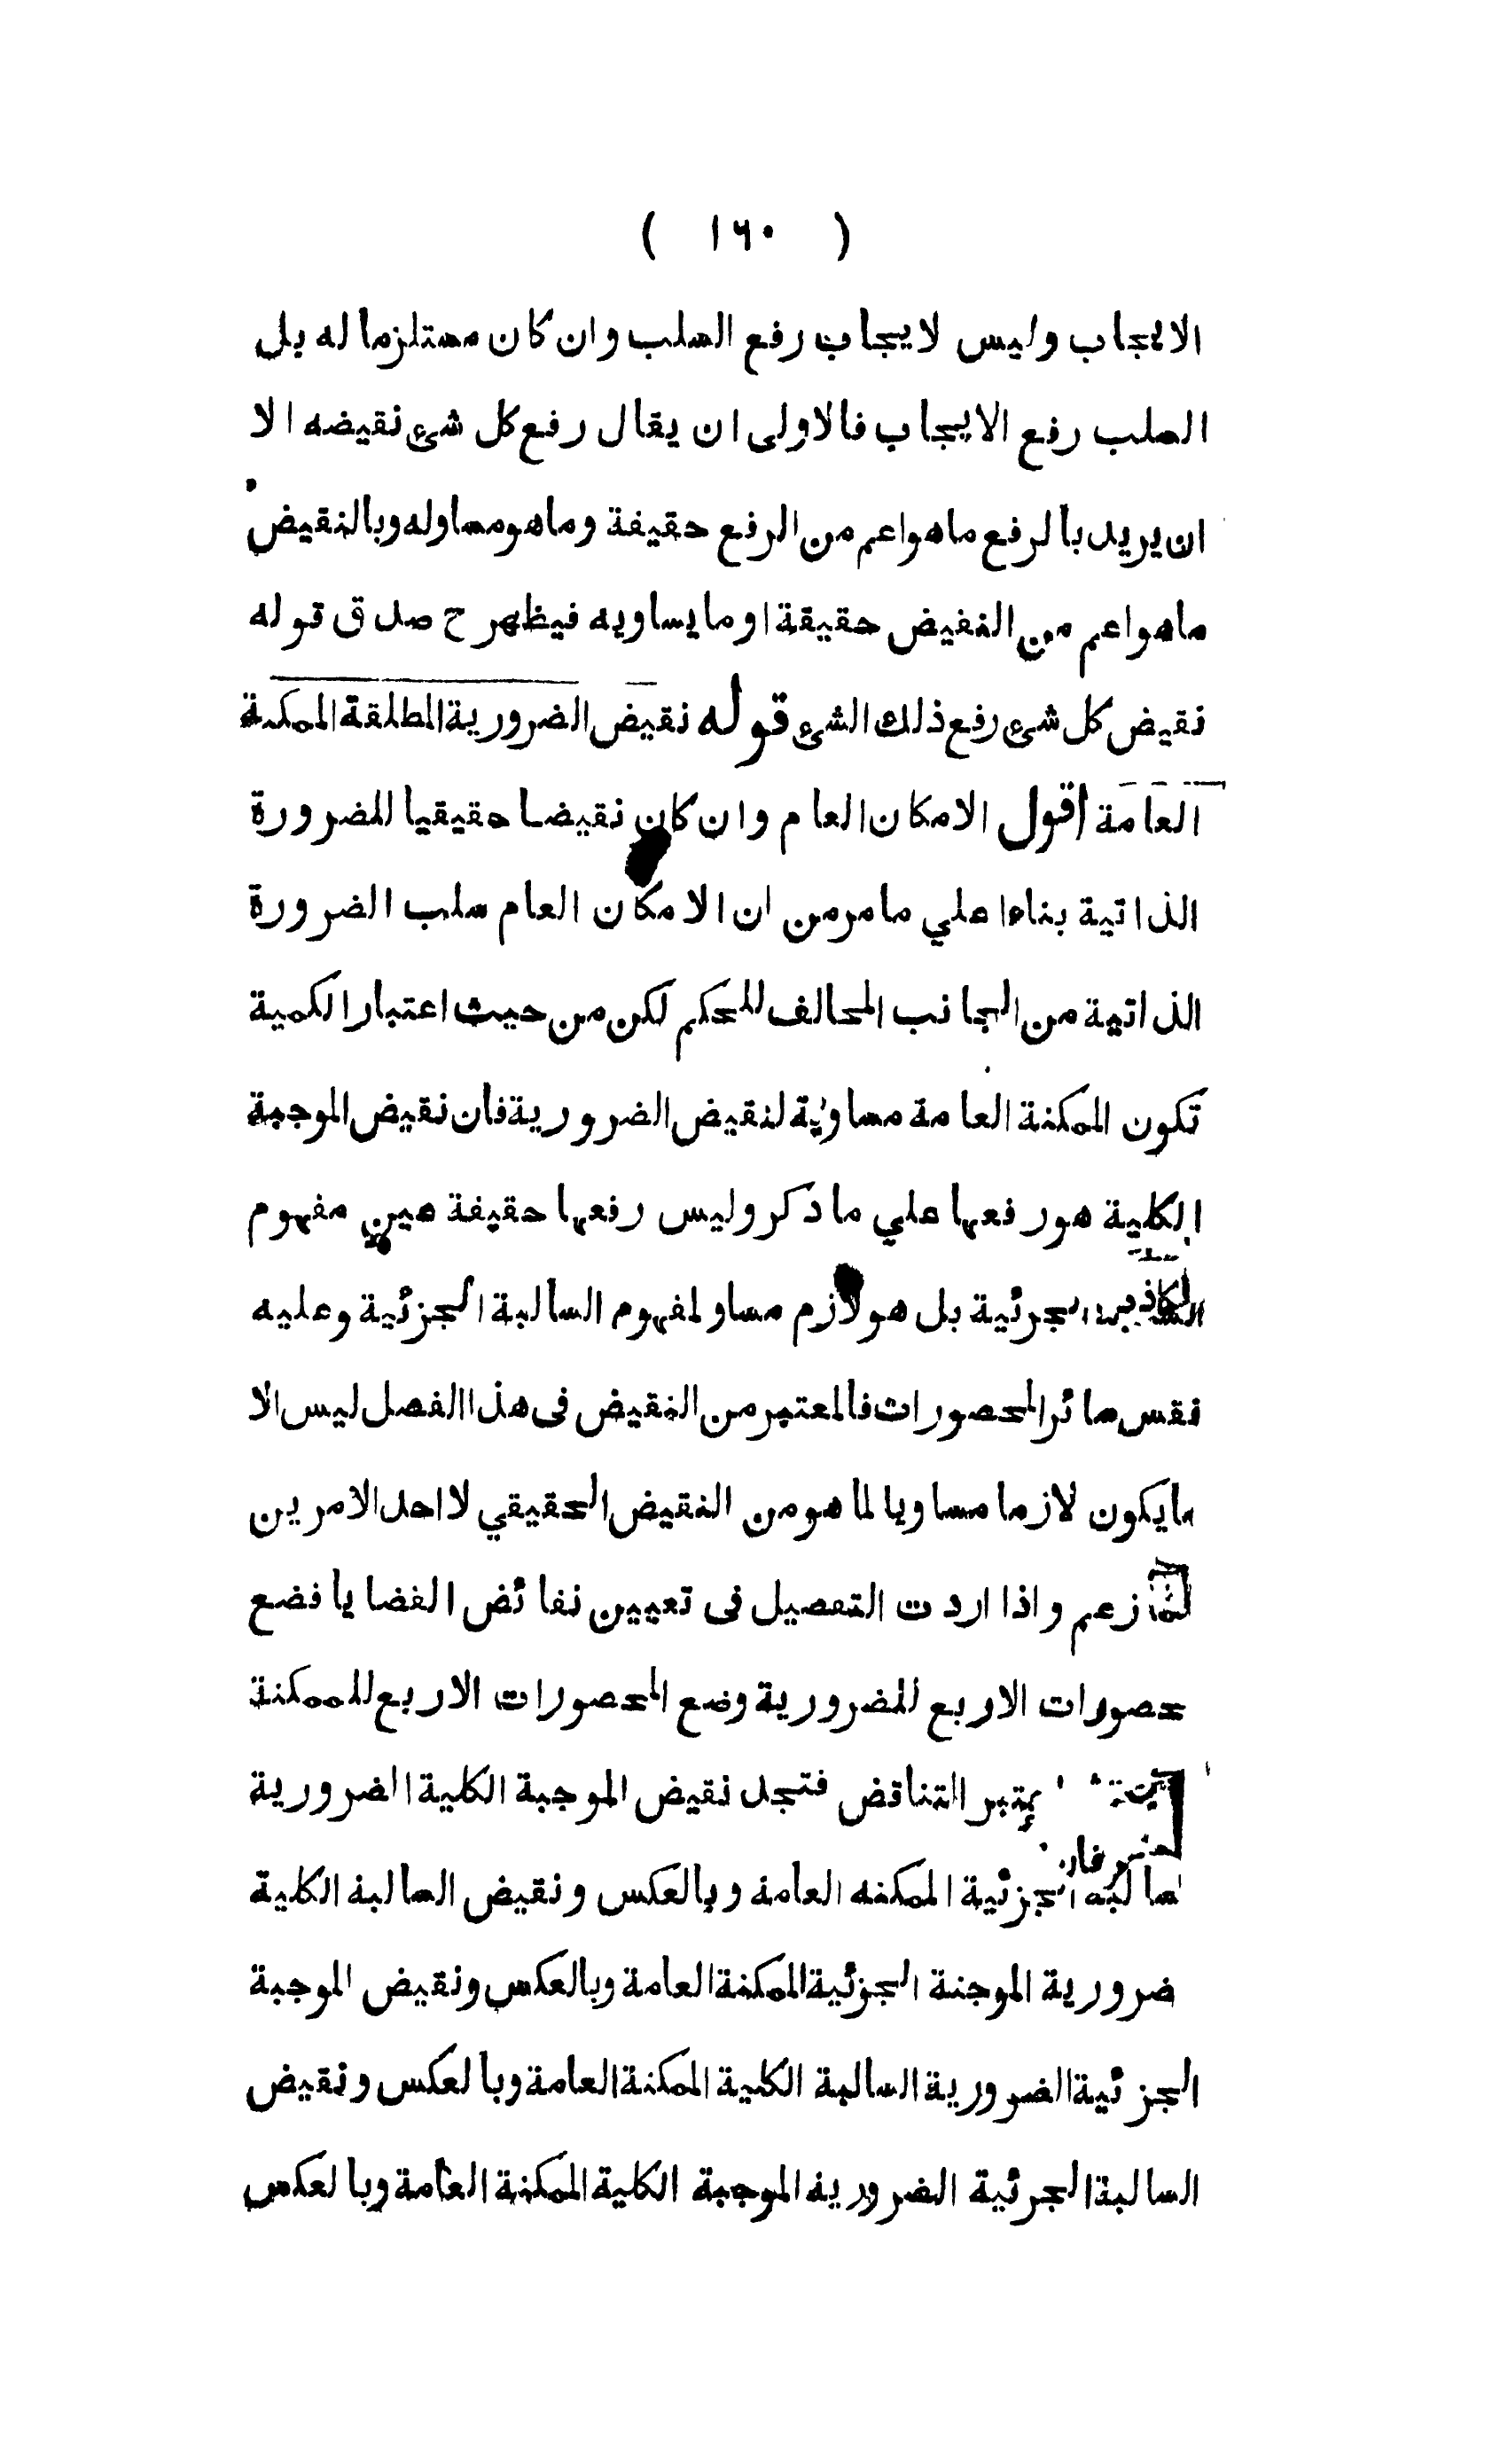 ( ١٦٠ )
الايجاب وليس لايجاب رفع السلب وان كان مستلزما له بل
السلب رفع الايجاب فالاولى ان يقال رفع كل شئ نقيضه الا
ان يريد بالرفع ماهو اعم من الرفع حقيقة وما هو مساو له وبالنقيض
ماهو اعم من النقيض حقيقة او ما يساويه فيظهر ح صدق قوله
نقيض كل شئ رفع ذلك الشئ قوله نقيض الضرورية المطلقة الممكنة
العامة اقول الامكان العام وان كان نقيضا حقيقيا للضرورة
الذاتية بناءا علي مامر من ان الامكان العام سلب الضرورة
الذاتية من الجانب المخالف للحكم لكن من حيث اعتبار الكمية
تكون الممكنة العامة مساوية لنقيض الضرورية فان نقيض الموجبة
الكلية هو رفعها علي ما ذكر وليس رفعها حقيقة عين مفهوم
الجزئية بل هو لازم مساو لمفهوم السالبة الجزئية وعليه
فقس سائر المحصورات فالمعتبر من النقيض فى هذا الفصل ليس الا
مايكون لازما مساويا لما هو من النقيض الحقيقي لا احد الامرين
زعم واذا اردت التفصيل فى تعيين نقائض القضايا فضع
حصورات الاربع للضرورية وضع المحصورات الاربع للممكنة
التناقض فتجد نقيض الموجبة الكلية الضرورية
سالبة الجزئية الممكنة العامة وبالعكس ونقيض السالبة الكلية
ضرورية الموجبة الجزئية الممكنة العامة وبالعكس ونقيض الموجبة
الجزئية الضرورية السالبة الكلية الممكنة العامة وبالعكس ونقيض
السالبة الجزئية الضرورية الموجبة الكلية الممكنة العامة وبالعكس